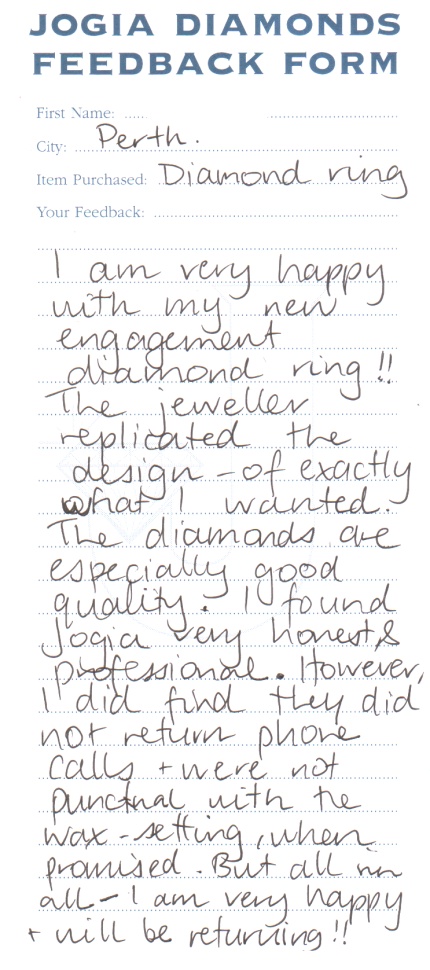 JOGIA DIAMONDS
FEEDBACK FORM
First Name:
City: Perth.
Item Purchased: Diamond ring
Your Feedback:
I am very happy
with my new
engagement
diamond ring!!
The jeweller
replicated the
design - of exactly
what I wanted.
The diamonds are
especially good
quality. I found
Jogia very honest &
professional. However,
I did find they did
not return phone
calls + were not
punctual with the
wax-setting, when
promised. But all in
all - I am very happy
+ will be returning!!